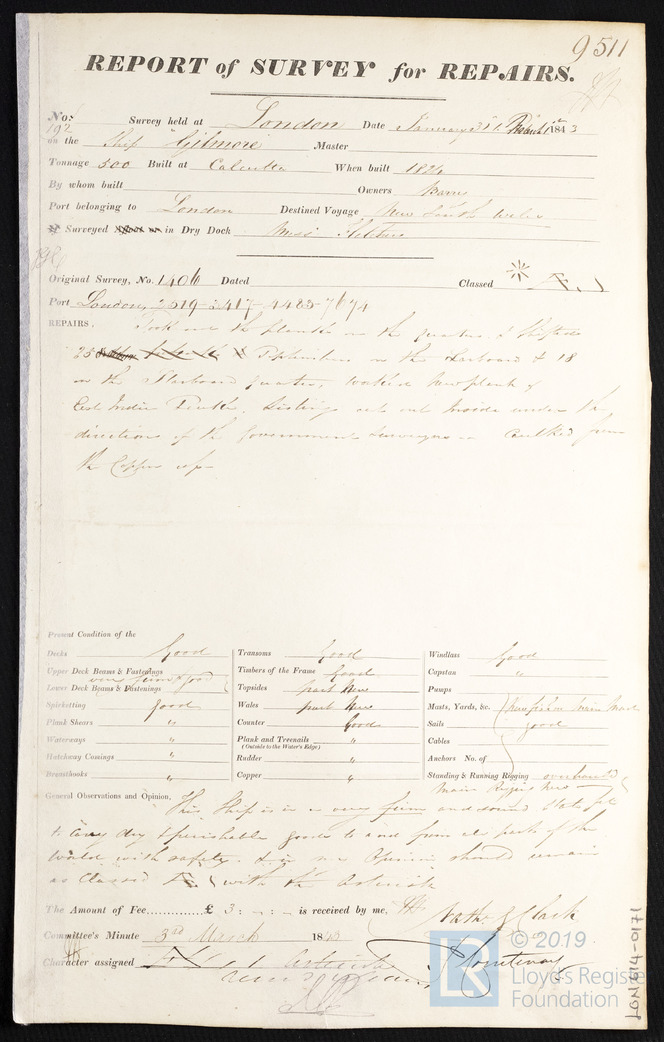 9511
REPORT of SURVEY for REPAIRS.
No: 192 Survey held at London Date January 31st 1843
on the Ship "Gilmore" Master
Tonnage 500 Built at Calcutta When built 1824
By whom built Owners
Port belonging to London Destined Voyage New South Wales
Surveyed Afloat or in Dry Dock
Original Survey, No. 1406 Dated Classed
Port London 2519-3417-4485-7674
REPAIRS. Took out the planks in the quarters & shifted
25 Toptimbers on the Larboard & 18
on the Starboard quarter, worked New plank of
East India Teak. Listings cut out Inside under the
directions of the Government Surveyors Caulked from
the Copper up
Present Condition of the
Decks Good
Upper Deck Beams & Fastenings
very firm & good
Lower Deck Beams & Fastenings
Spirketting good
Plank Shears "
Waterways "
Hatchway Comings "
Breasthooks "
Transoms Good
Timbers of the Frame Good
Topsides part New
Wales part New
Counter Good
Plank and Treenails "
(Outside to the Water's Edge)
Rudder "
Copper "
Windlass Good
Capstan "
Pumps
Masts, Yards, &c. Main Mast
Sails good
Cables
Anchors No. of
Standing & Running Rigging overhauled
Main Rigging New
General Observations and Opinion, This Ship is in a very firm and sound State fit
to carry dry & perishable goods to and from all parts of the
World with safety. & in my Opinion should remain
as Classed with the Asterisk
The Amount of Fee............£ 3 : - : - is received by me, Nathl. J Clark
Committee's Minute 3rd March 1843
Character assigned
LON 614-0171
LR
© 2019
Lloyd's Register
Foundation